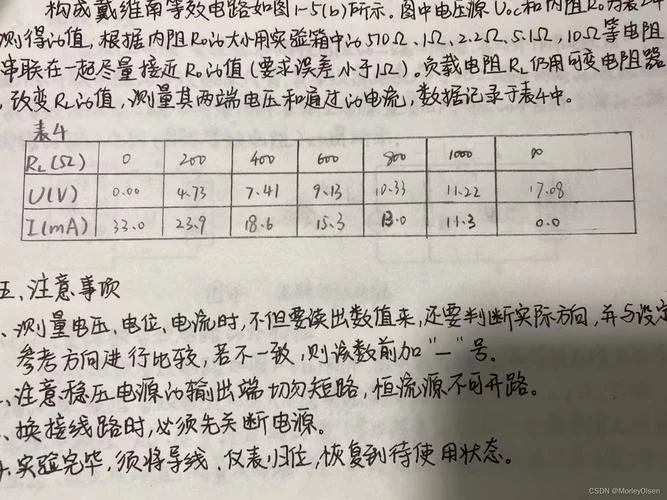 构成戴维南等效电路如图1-5(b)所示。图中电压源Uoc和内阻Ro为表2中
测得的值,根据内阻Ro的大小用实验箱中的510Ω、1Ω、2.2Ω、5.1Ω、10Ω等电阻
串联在一起尽量接近Ro的值(要求误差小于1Ω)。负载电阻RL仍用可变电阻器
,改变RL的值,测量其两端电压和通过的电流,数据记录于表4中。
表4
RL(Ω) 0 200 400 600 800 1000 ∞
U(V) 0.00 4.73 7.41 9.13 10.33 11.22 17.08
I(mA) 33.0 23.9 18.6 15.3 13.0 11.3 0.0
五、注意事项
、测量电压、电位、电流时,不但要读出数值来,还要判断实际方向,并与设定
参考方向进行比较,若不一致,则该数前加“一”号。
、注意稳压电源的输出端切勿短路,恒流源不可开路。
、换接线路时,必须先关断电源。
、实验完毕,须将导线、仪表归位,恢复到待使用状态。
CSDN @MorleyOlsen